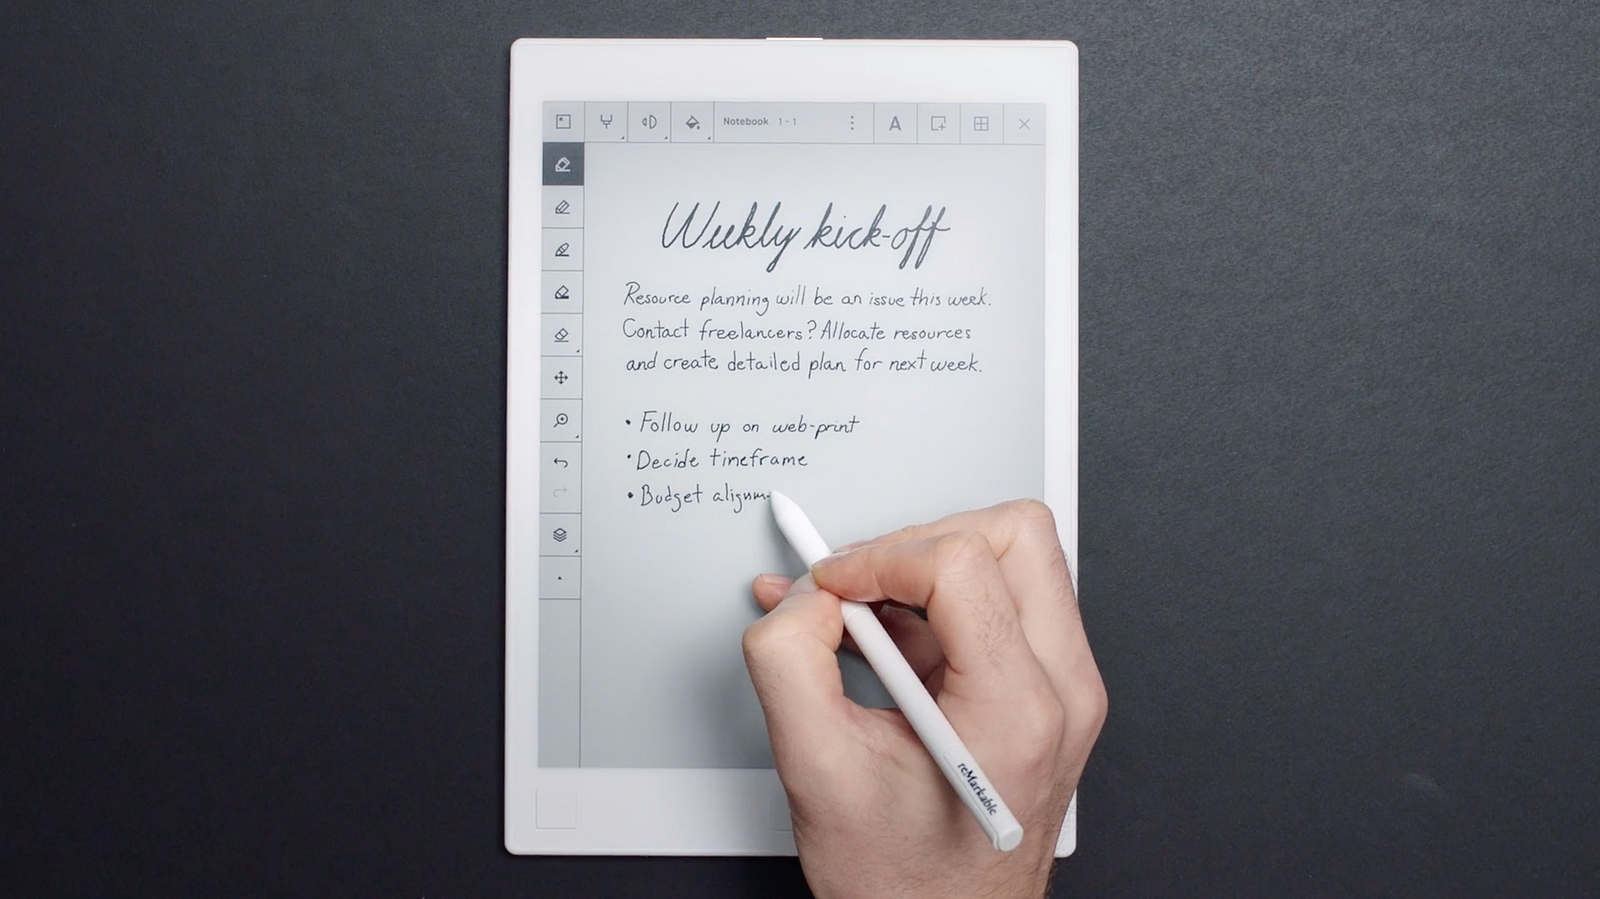 Notebook 1 - 1
A
Weekly kick-off
Resource planning will be an issue this week.
Contact freelancers? Allocate resources
and create detailed plan for next week.
• Follow up on web-print
• Decide timeframe
• Budget alignm
reMarkable